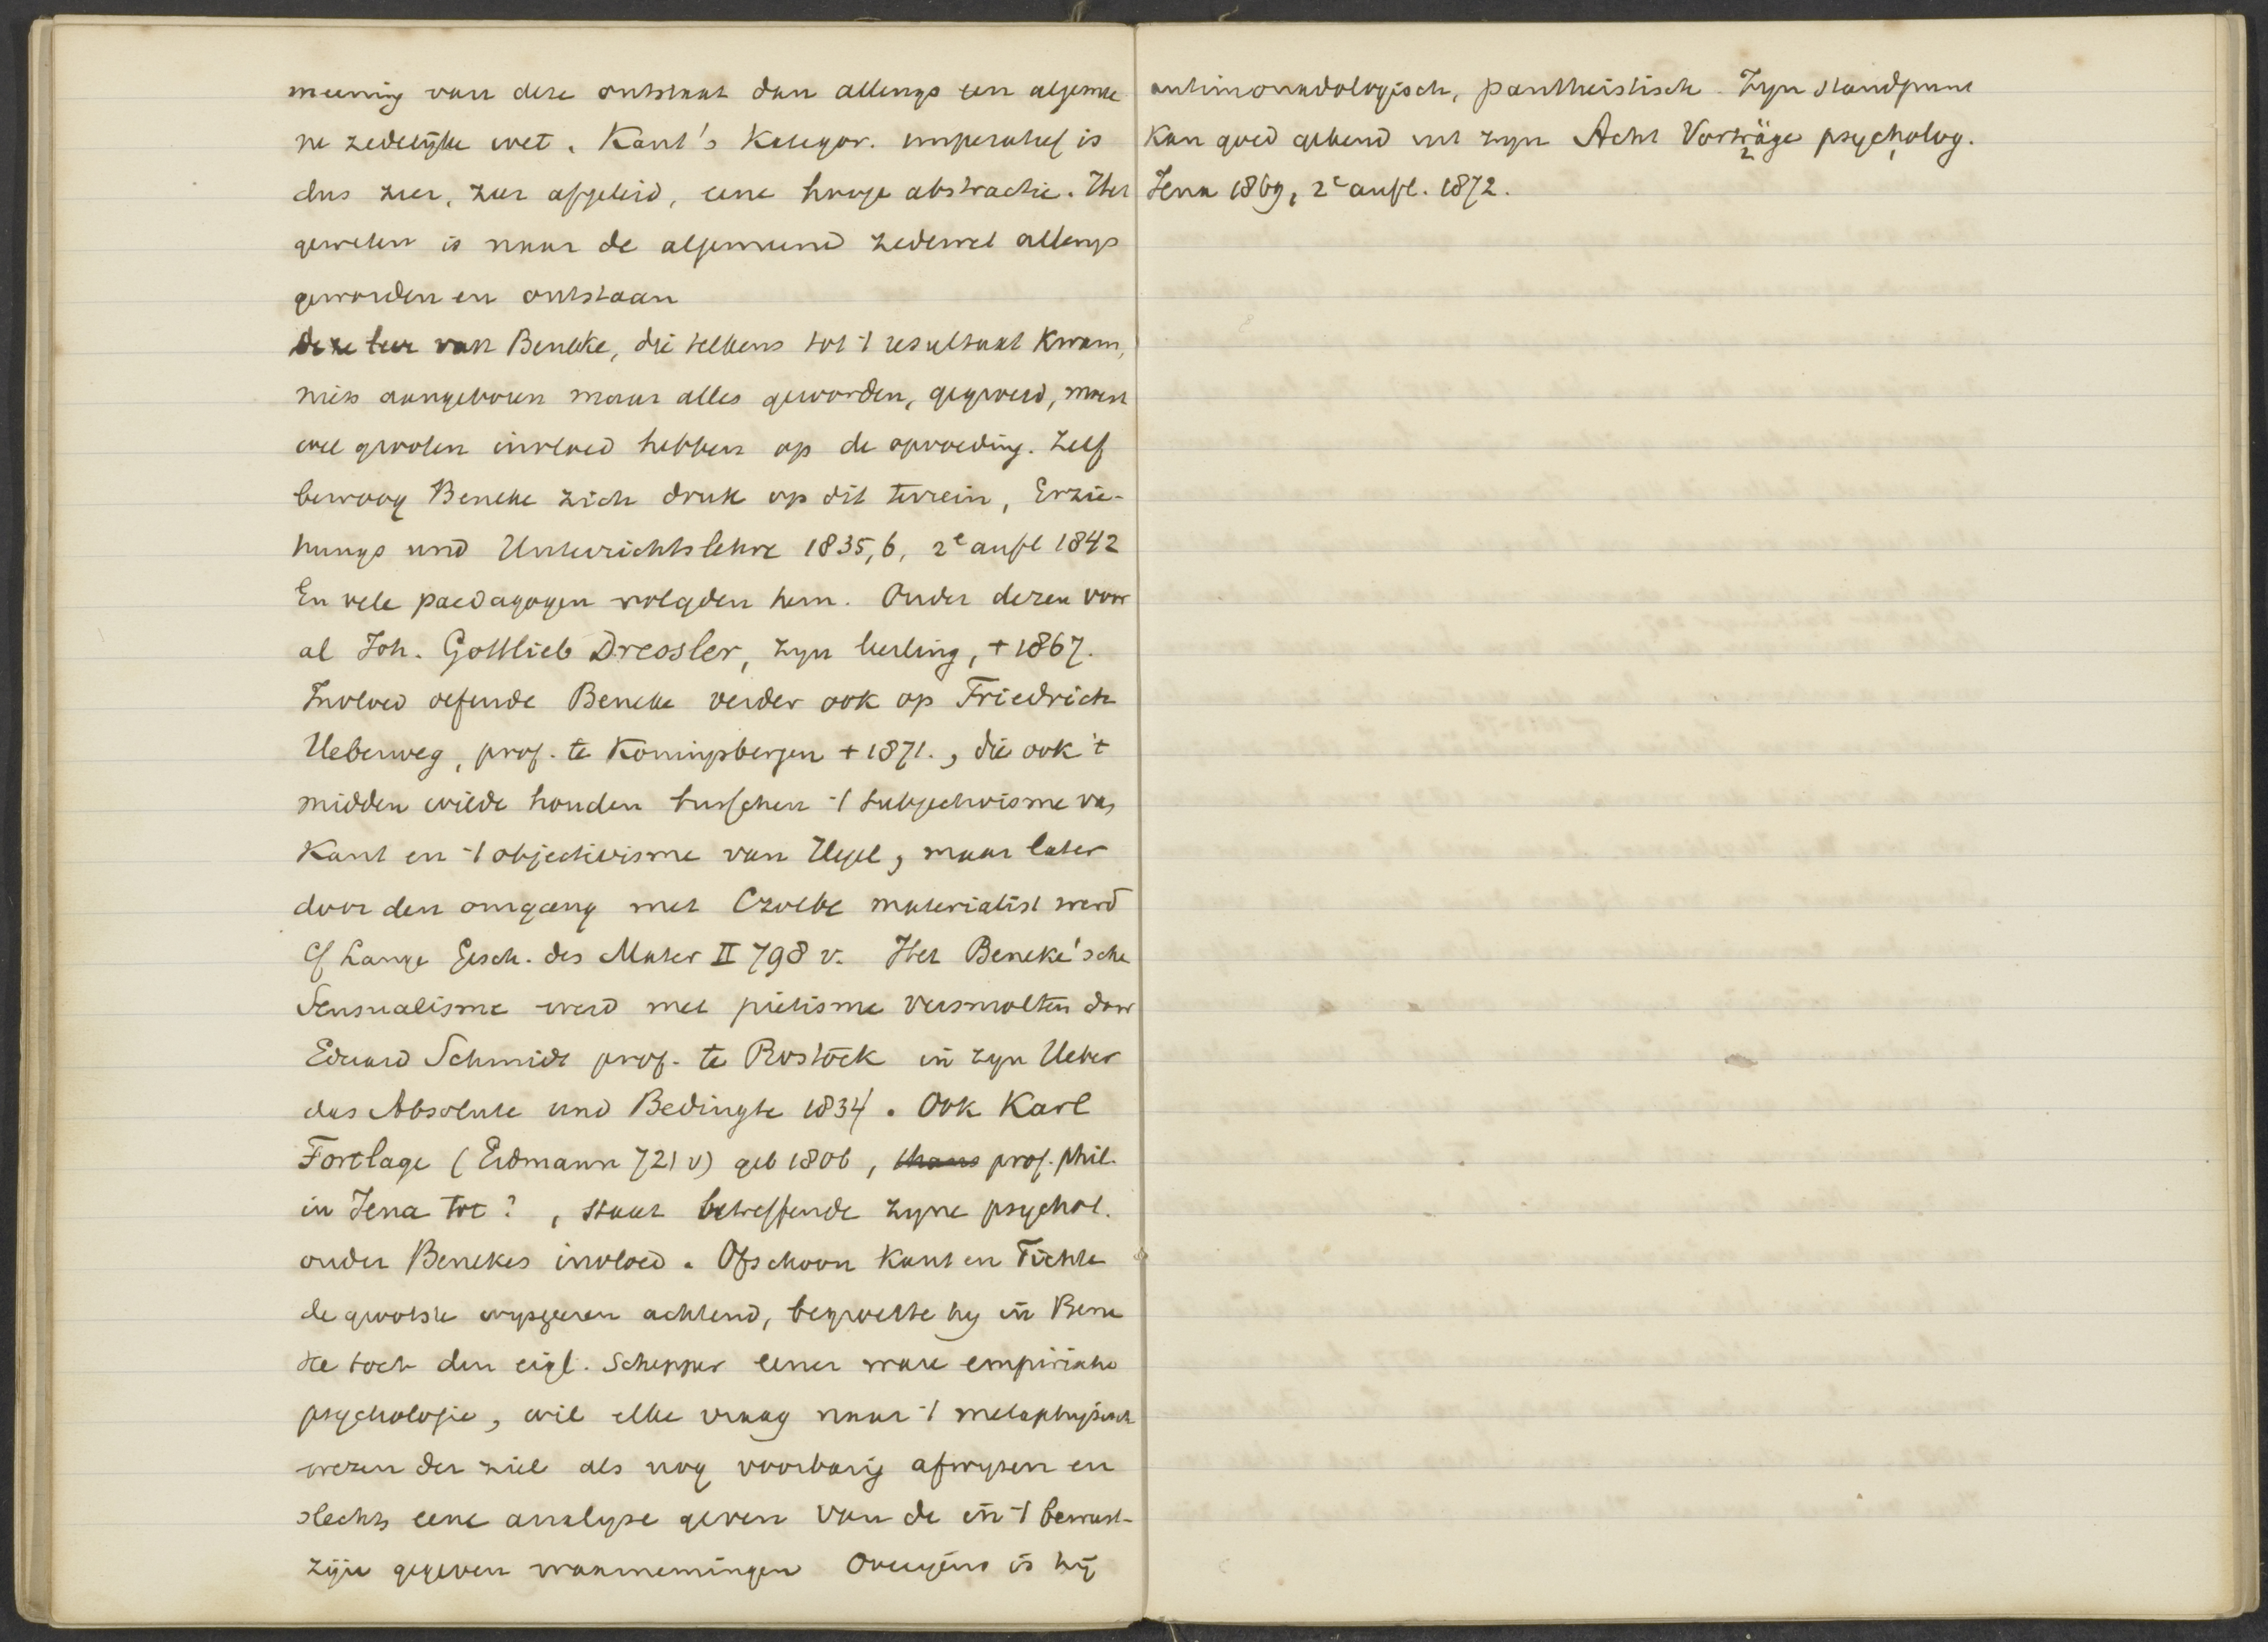 meening van deze ontstaat dan allengs een algemee
ne zedelijke wet. Kant's Kategor. imperatief is
dus zeer, zeer afgeleid, eene hooge abstractie. Het
geweten is naar de algemeene zedewet allengs
geworden en ontstaan
Deze leer van Beneke, die telkens tot 't resultaat kwam,
niets aangeboren maar alles geworden, gegroeid, moest
wel grooten invloed hebben op de opvoeding. Zelf
bewoog Beneke zich druk op dit terrein, Erzie-
hungs und Unterrichtslehre 1835,6, 2e aufl 1842
En vele paedagogen volgden hem. Onder dezen voor
al Joh. Gottlieb Dressler, zyn leerling, + 1867.
Invloed oefende Beneke verder ook op Friedrich
Ueberweg, prof. te Koningsbergen + 1871., die ook 't
midden wilde houden tusschen 't subjectivisme van
Kant en 't objectivisme van Hegel, maar later
door den omgang met Czolbe materialist werd
Cf Lange Gesch. des Mater II 798 v. Het Beneke'sche
Sensualisme werd met pietisme versmolten door
Eduard Schmidt prof. te Rostock in zyn Ueber
das Absolute und Bedingte 1834. Ook Karl
Fortlage (Erdmann 721 v) geb 1806, thans prof. phil.
in Jena tot ?, staat betreffende zyne psychol.
onder Benekes invloed. Ofschoon Kant en Fichte
de grootste wysgeeren achtend, begroette hy in Bene
ke toch den eigl. Schepper eener ware empirische
psychologie, wil elke vraag naar 't metaphysisch
wezen der ziel als nog voorbarig afwyzen en
slechts eene analyse geven van de in 't bewust-
zijn gegeven waarnemingen Overigens is hij
antimonadologisch, pantheistisch. Zyn standpunt
kan goed gekend uit zyn Acht Vorträge psycholog.
Jena 1869, 2e aufl. 1872.